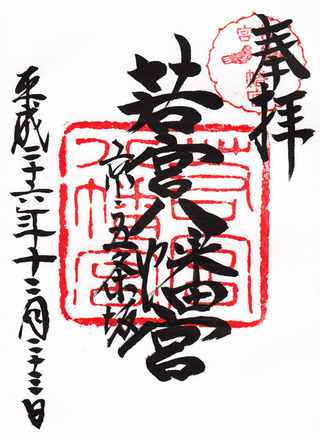 奉拝
若宮八幡宮
京・五条坂
平成二十六年十二月二十三日